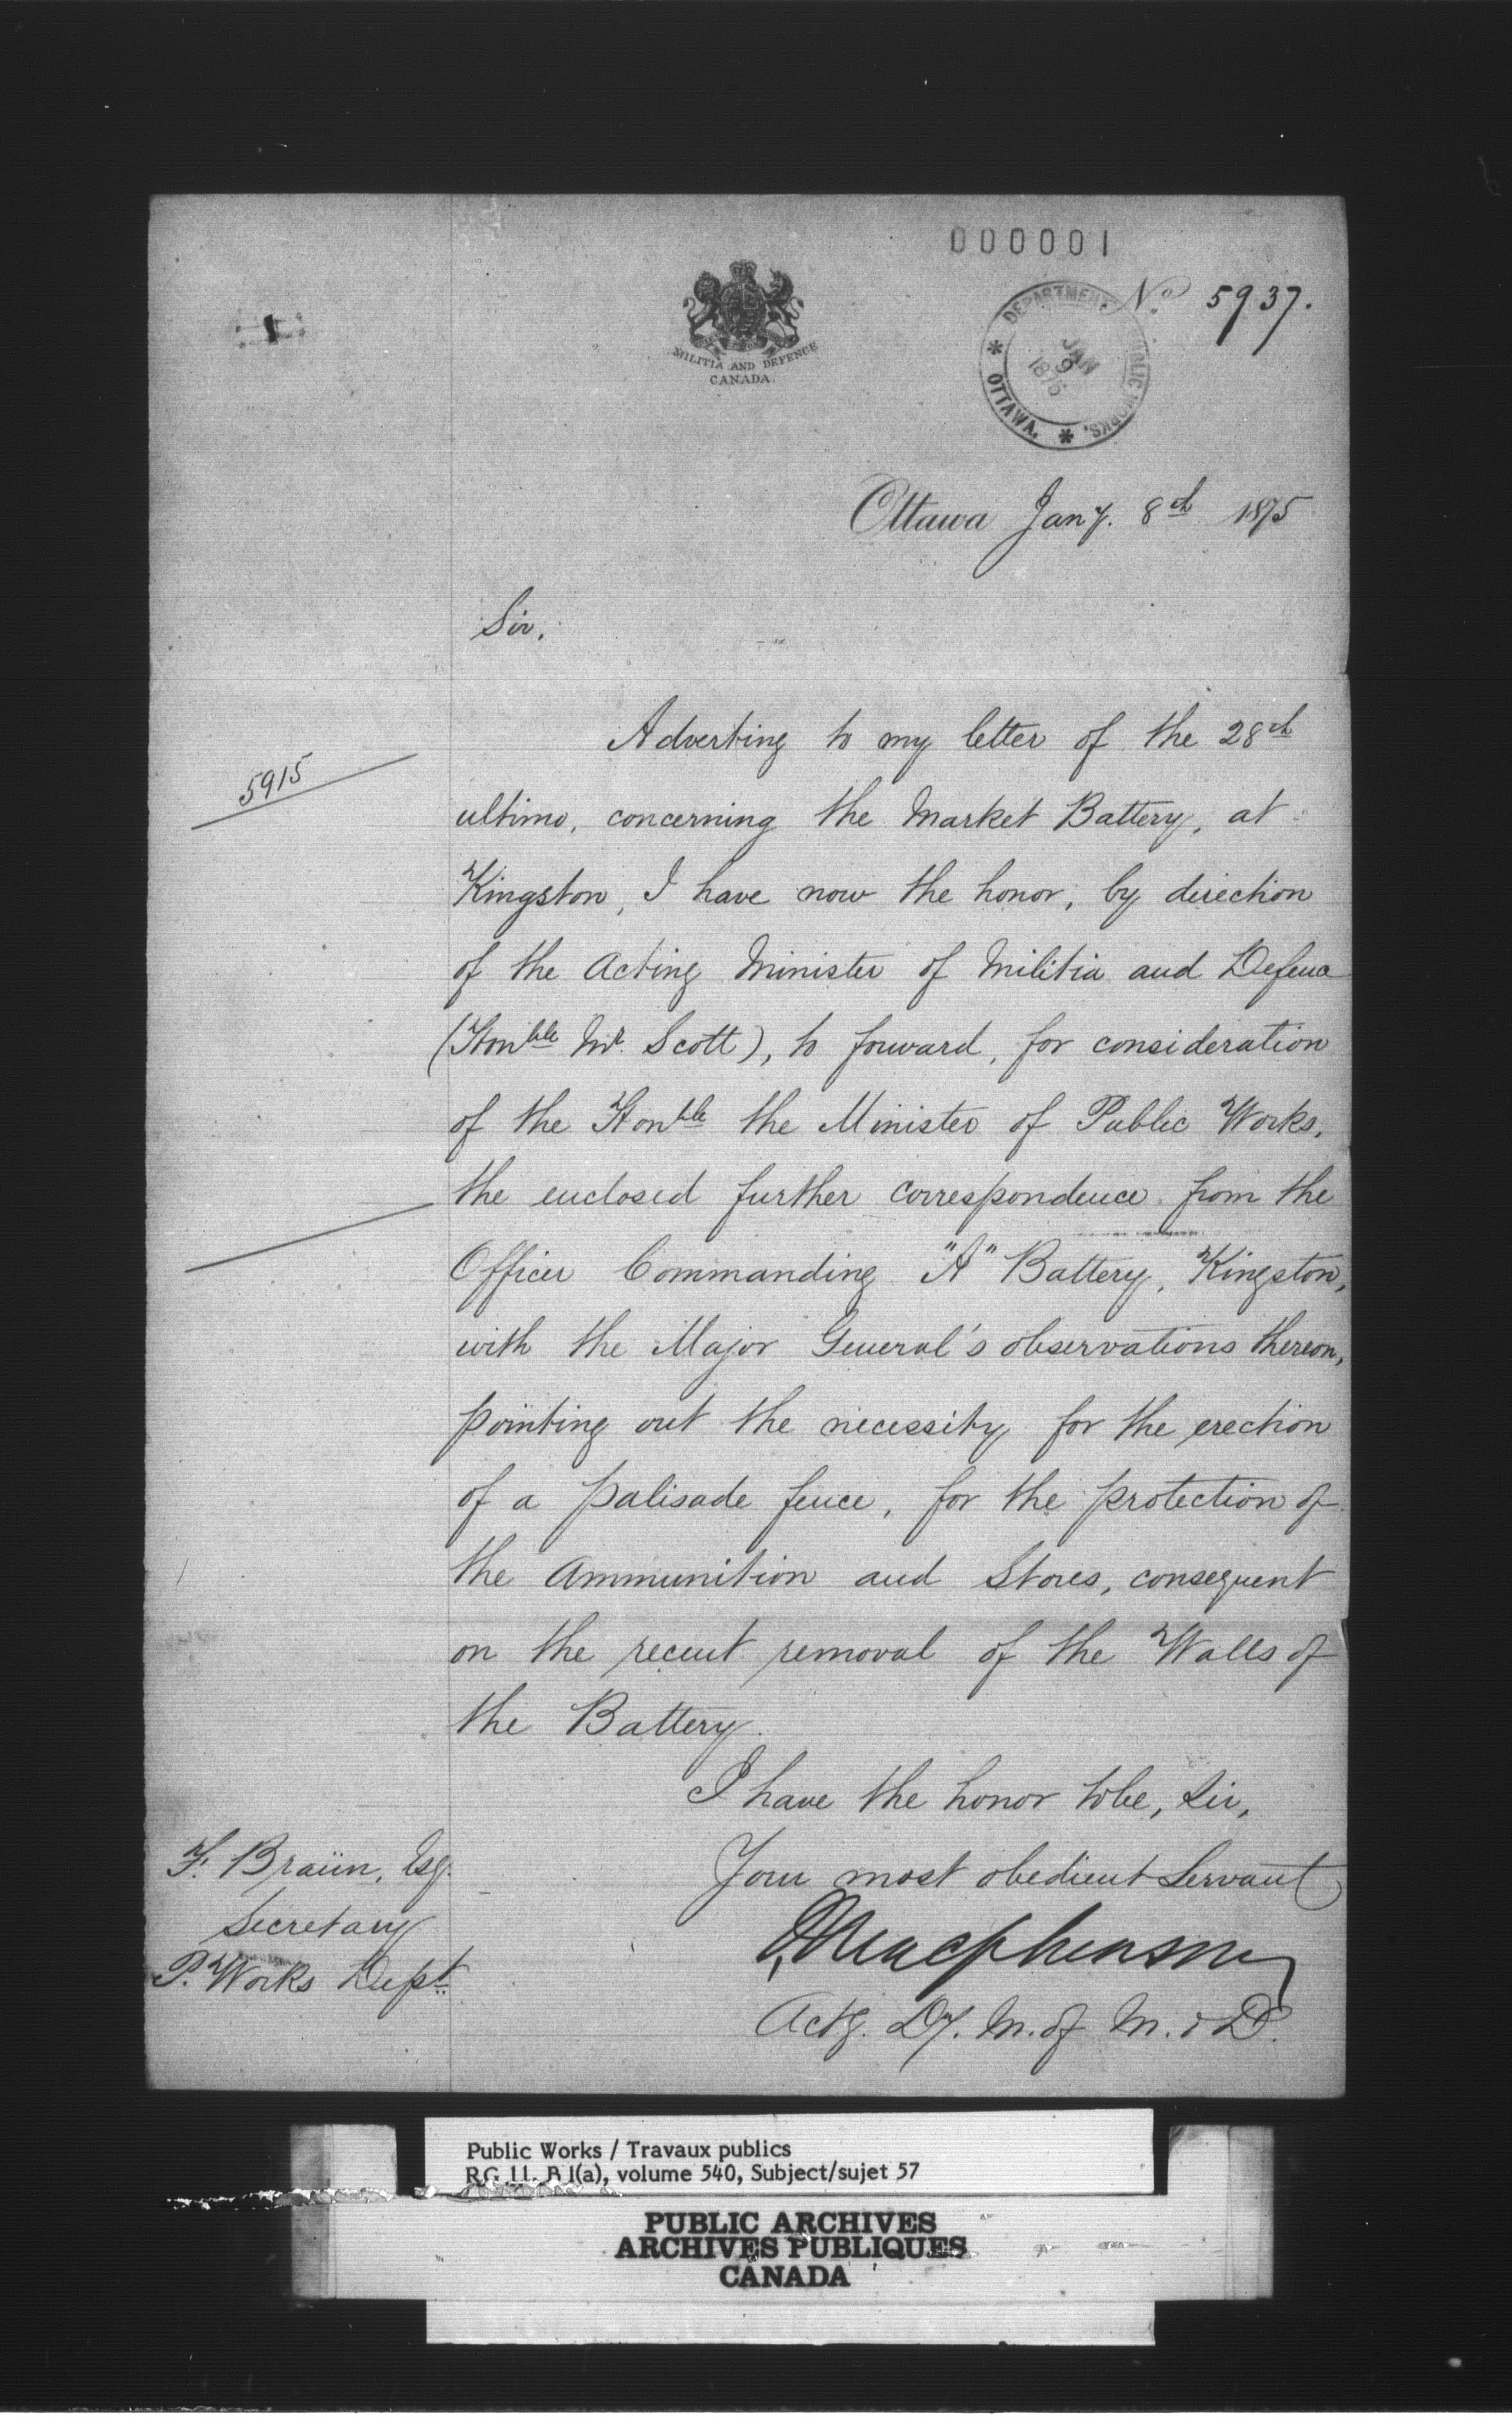 000001
MILITIA AND DEFENCE
CANADA
DEPARTMENT PUBLIC WORKS.
JAN
9
1875
* OTTAWA. *
No. 5937.
Ottawa Jany. 8th 1875
Sir,
Adverting to my letter of the 28th
5915
ultimo, concerning the Market Battery, at
Kingston, I have now the honor, by direction
of the Acting Minister of Militia and Defence
(Honble Mr. Scott), to forward, for consideration
of the Honble the Minister of Public Works,
the enclosed further correspondence from the
Officer Commanding "A" Battery, Kingston,
with the Major General's observations thereon,
pointing out the necessity for the erection
of a palisade fence, for the protection of
the Ammunition and Stores, consequent
on the recent removal of the Walls of
the Battery.
I have the honor to be, Sir,
Your most obedient Servant
Macpherson
Actg. Dy. M. of M. & D.
F. Braün, Esq.
Secretary
P. Works Dept.
Public Works / Travaux publics
RG 11, B 1(a), volume 540, Subject/sujet 57
PUBLIC ARCHIVES
ARCHIVES PUBLIQUES
CANADA